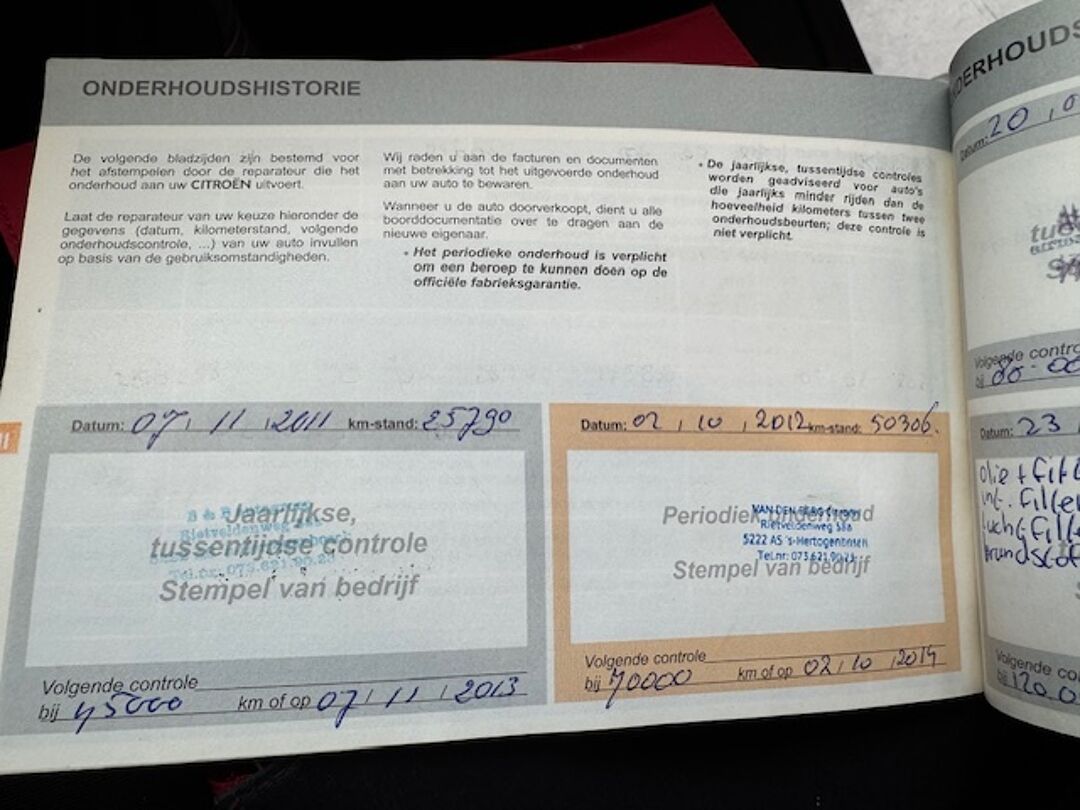 ONDERHOUDSHISTORIE
De volgende bladzijden zijn bestemd voor
het afstempelen door de reparateur die het
onderhoud aan uw CITROËN uitvoert.
Laat de reparateur van uw keuze hieronder de
gegevens (datum, kilometerstand, volgende
onderhoudscontrole, ...) van uw auto invullen
op basis van de gebruiksomstandigheden.
Wij raden u aan de facturen en documenten
met betrekking tot het uitgevoerde onderhoud
aan uw auto te bewaren.
Wanneer u de auto doorverkoopt, dient u alle
boorddocumentatie over te dragen aan de
nieuwe eigenaar.
• Het periodieke onderhoud is verplicht
om een beroep te kunnen doen op de
officiële fabrieksgarantie.
• De jaarlijkse, tussentijdse controles
worden geadviseerd voor auto's
die jaarlijks minder rijden dan de
hoeveelheid kilometers tussen twee
onderhoudsbeurten; deze controle is
niet verplicht.
Datum: 07 / 11 / 2011 km-stand: 25790
Jaarlijkse,
tussentijdse controle
Stempel van bedrijf
Rietveldenweg
Tel.nr: 073.621.90.23
Volgende controle
bij 45000 km of op 07 / 11 / 2013
Datum: 02 / 10 / 2012 km-stand: 50306.
Periodiek onderhoud
Stempel van bedrijf
VAN DEN BERG
Rietveldenweg 58a
5222 AS 's-Hertogenbosch
Tel.nr: 073.621.90.23
Volgende controle
bij 70000 km of op 02 / 10 / 2014
Datum: 20
Volgende
bij 80.00
Datum: 23
olie + filt
int. filter
lucht filte
brandstof
Volgende
bij 120.0